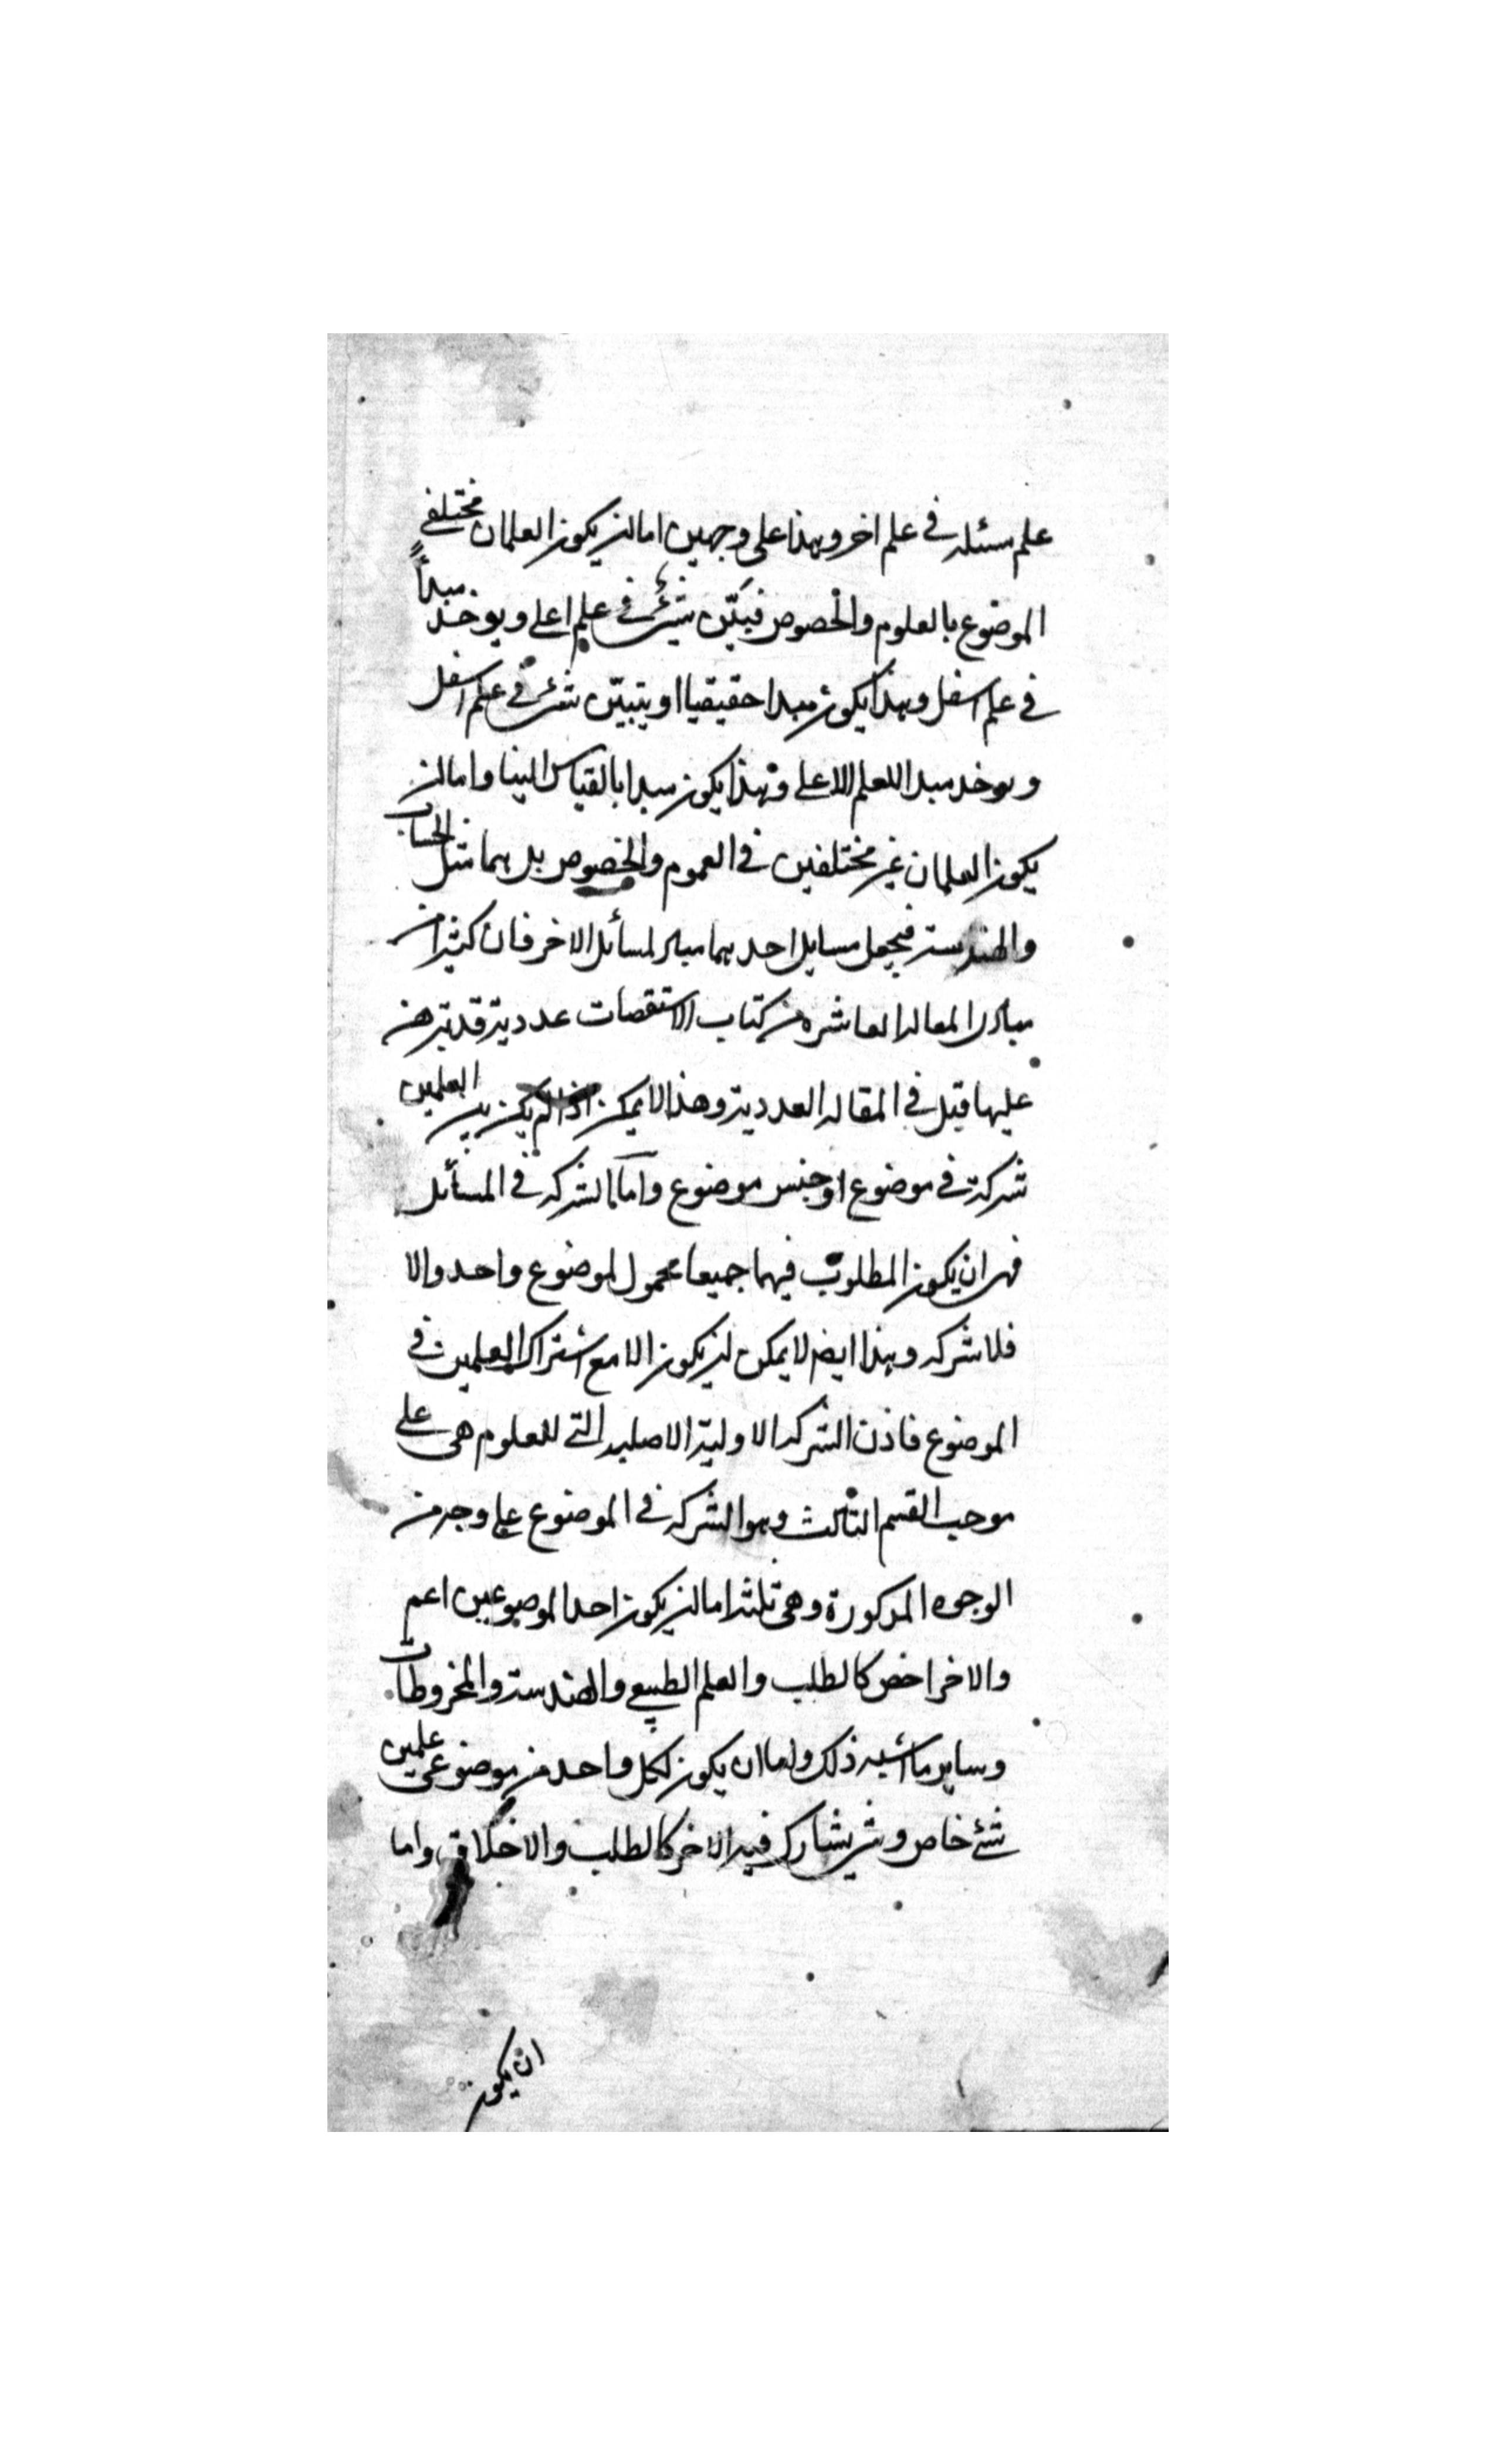 علم مسئله في علم اخر وهذا على وجهين اما ان يكون العلمان مختلفي
الموضوع بالعلوم والخصوص فيبيّن شئ في علم اعلى ويوخذ مبدأً
في علم اسفل وهذا يكون مبدا حقيقيا او يتبيّن شئ في علم اسفل
ويوخد مبدا للعلم الاعلى وهذا يكون مبدا بالقياس الينا واما ان
يكون العلمان غير مختلفين في العموم والخصوص بل هما مثل الحساب
والهندسة فيجعل مسايل احدهما مبادى لمسائل الاخر فان كثيرا من
مبادى المقاله العاشره من كتاب الاستقصات عددية قد تبرهن
عليها قبل في المقاله العددية وهذا لا يمكن اذا لم يكن بين العلمين
شركة في موضوع او جنس موضوع وامّا الشركه في المسائل
فهى ان يكون المطلوب فيهما جميعا محمول لموضوع واحد والا
فلا شركه وهذا ايضا لا يمكن ان يكون الا مع اشتراك العلمين في
الموضوع فاذن الشركه الاولية الاصليه التي للعلوم هى على
موجب القسم الثالث وهو الشركه في الموضوع على وجه من
الوجوه المذكورة وهى ثلثة اما ان يكون احد الموضوعين اعم
والاخر اخص كالطلب والعلم الطبيعي والهندسة والمخروطات
وساير ما اشبه ذلك واما ان يكون لكل واحد من موضوعى علمين
شئ خاص وشئ يشارك فيه الاخر كالطلب والاخلاق واما
ان يكون